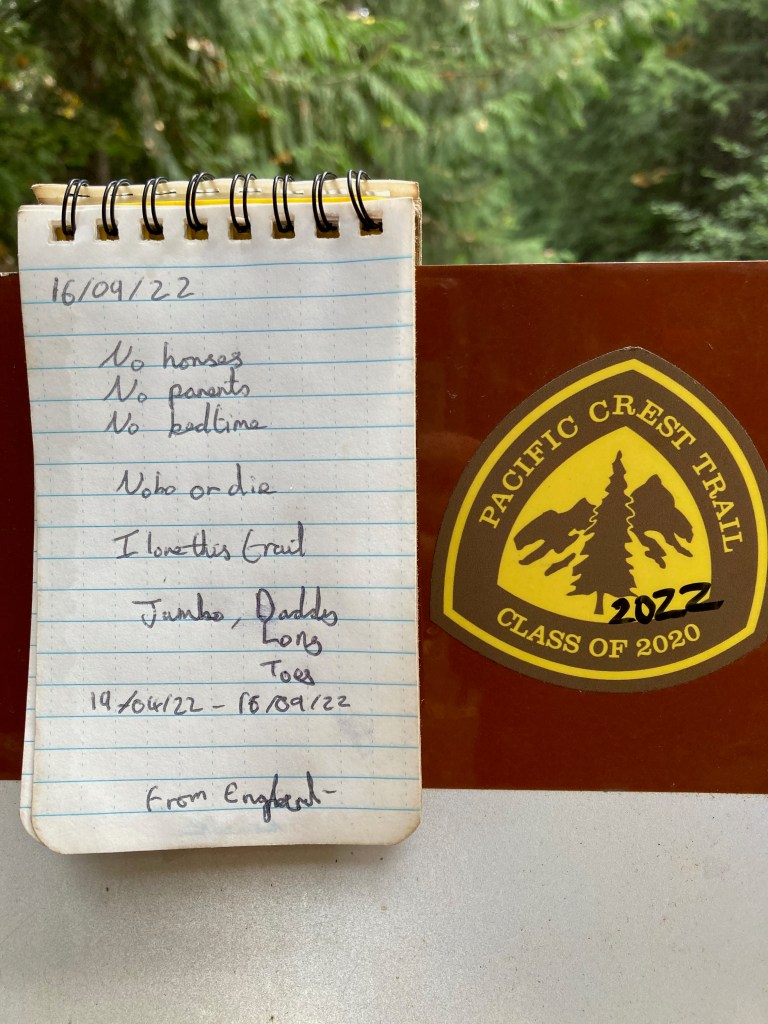 16/09/22
No horses
No parents
No bedtime
Nobo or die
I love this trail
Jumbo, Daddy
Long
Toes
19/04/22 - 16/09/22
From England
PACIFIC CREST TRAIL
2022
CLASS OF 2020